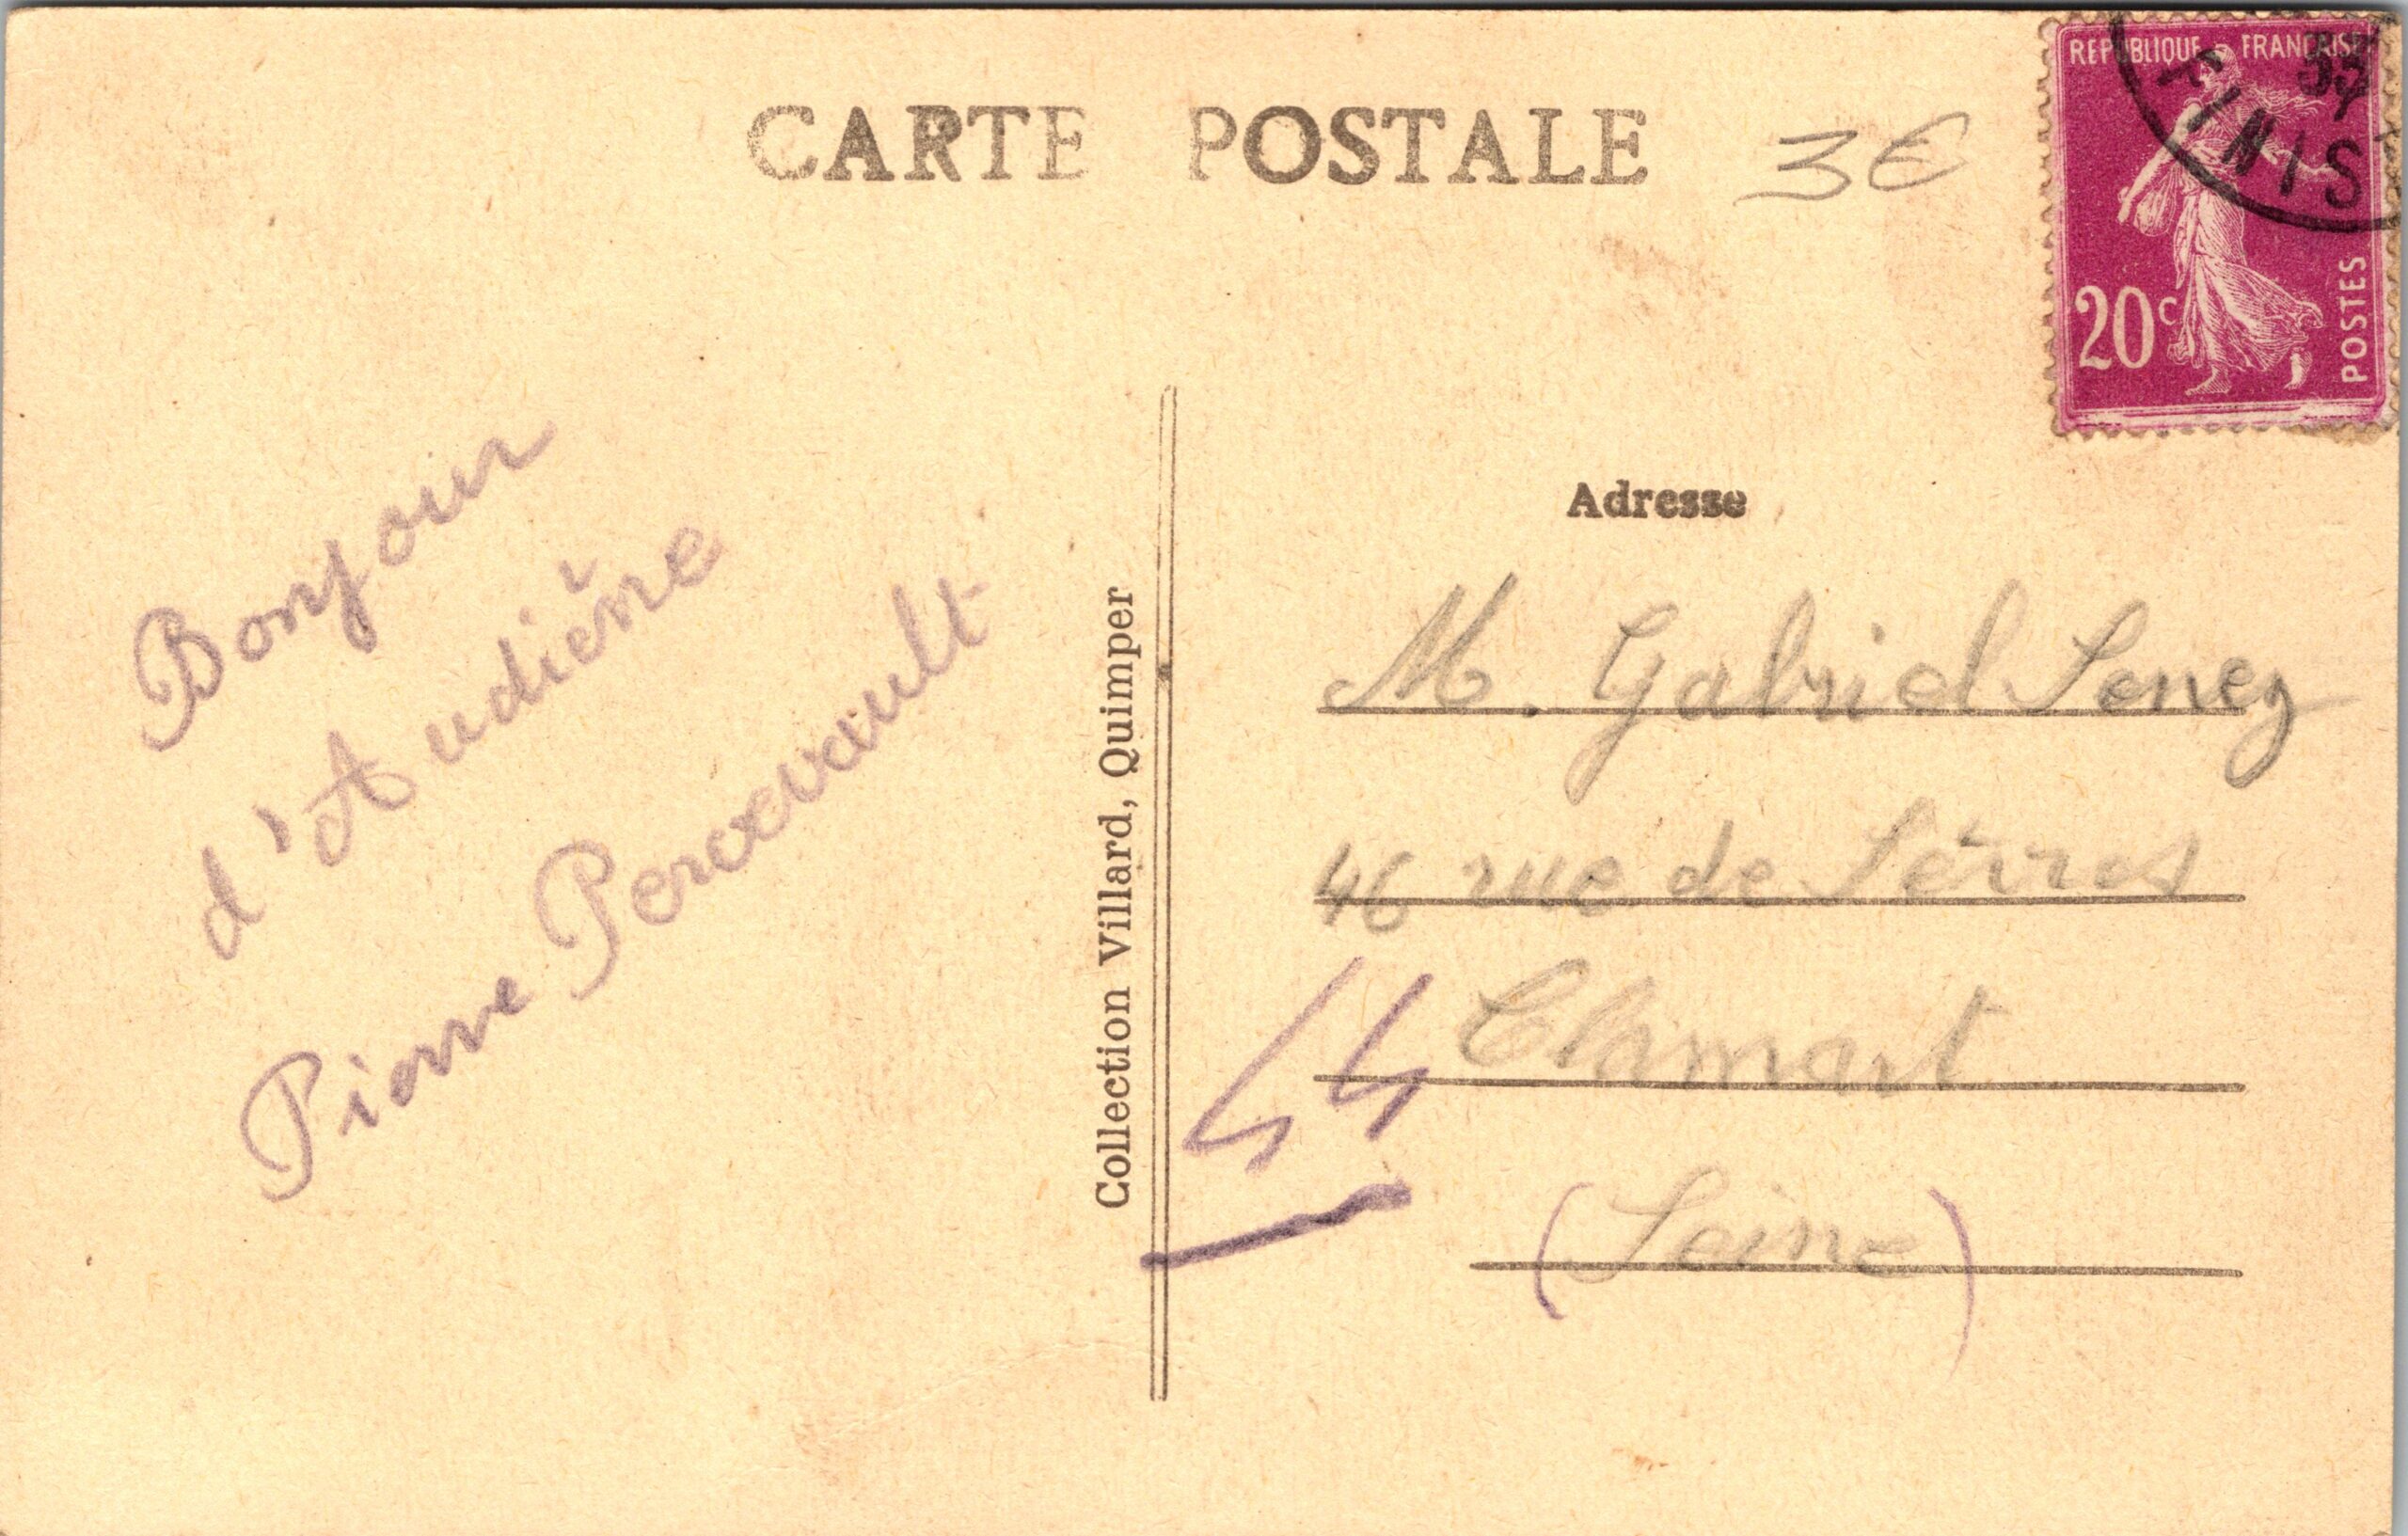 CARTE POSTALE
3€
REPUBLIQUE FRANÇAISE
33
FINIS
20c
POSTES
Bonjour
d'Audiène
Pierre Percevault
Collection Villard, Quimper
Adresse
M. Gabriel Senez
46 rue de Sèvres
44
Clamart
(Seine)